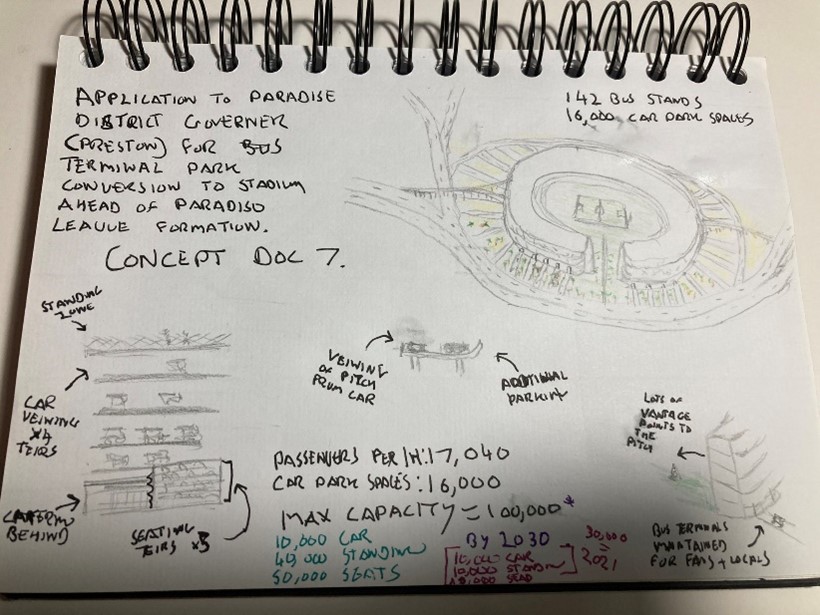 APPLICATION TO PARADISE
DISTRICT GOVERNER
(PRESTON) FOR BUS
TERMINAL PARK
CONVERSION TO STADIUM
AHEAD OF PARADISO
LEAGUE FORMATION.
CONCEPT DOC 7.
142 BUS STANDS
16,000 CAR PARK SPACES
STANDING
ZONE
CAR
VEIWING
X4
TEIRS
CATERING
BEHIND
SEATING
TEIRS X3
VEIWING
OF PITCH
FROM CAR
ADDITIONAL
PARKING
LOTS OF
VANTAGE
POINTS TO
THE
PITCH
BUS TERMINALS
MAINTAINED
FOR FANS + LOCALS
PASSENGERS PER 1H: 17,040
CAR PARK SPACES: 16,000
MAX CAPACITY = 100,000*
10,000 CAR
40,000 STANDING
50,000 SEATS
BY 2030
10,000 CAR
10,000 STANDIN
10,000 SEAD
30,000
=
2021